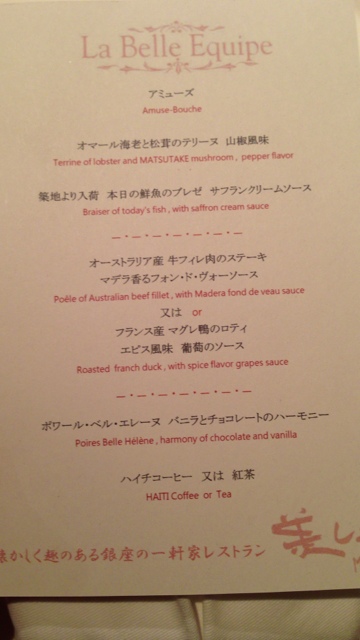 La Belle Equipe
アミューズ
Amuse-Bouche
オマール海老と松茸のテリーヌ 山椒風味
Terrine of lobster and MATSUTAKE mushroom , pepper flavor
築地より入荷 本日の鮮魚のブレゼ サフランクリームソース
Braiser of today's fish , with saffron cream sauce
オーストラリア産 牛フィレ肉のステーキ
マデラ香るフォン・ド・ヴォーソース
Poêle of Australian beef fillet , with Madera fond de veau sauce
又は or
フランス産 マグレ鴨のロティ
エピス風味 葡萄のソース
Roasted franch duck , with spice flavor grapes sauce
ポワール・ベル・エレーヌ バニラとチョコレートのハーモニー
Poires Belle Hélène , harmony of chocolate and vanilla
ハイチコーヒー 又は 紅茶
HAITI Coffee or Tea
懐かしく趣のある銀座の一軒家レストラン
美し